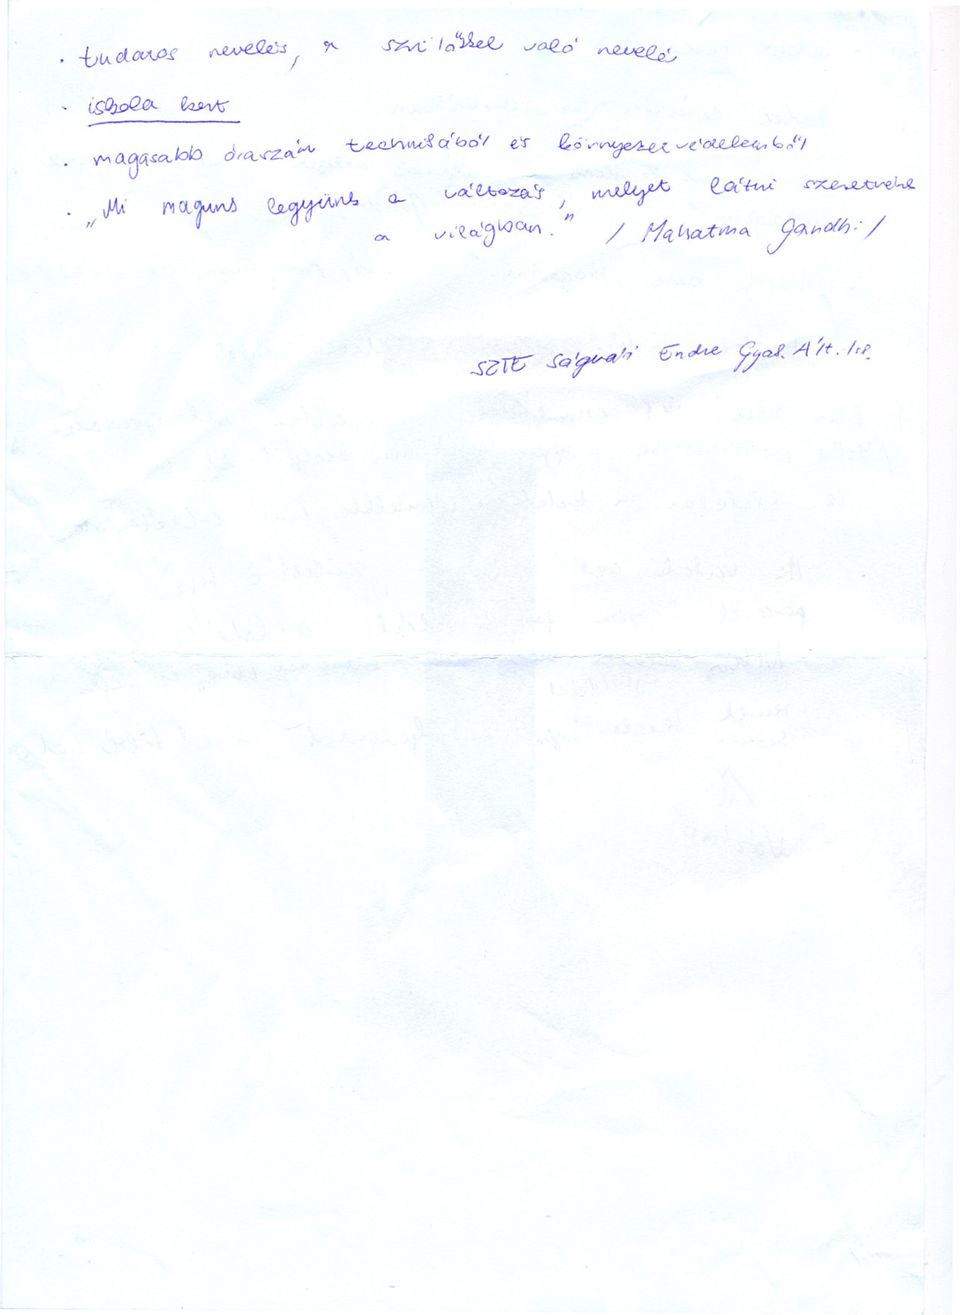 · tudatos nevelés, a szülőkkel való nevelé
· iskola kert
· magasabb óraszám technikából és környezetvédelemből
· „Mi magunk legyünk a változás, melyet látni szeretnénk
a világban." / Mahatma Gandhi /
SZTE Ságvári Endre Gyak. Ált. Isk.